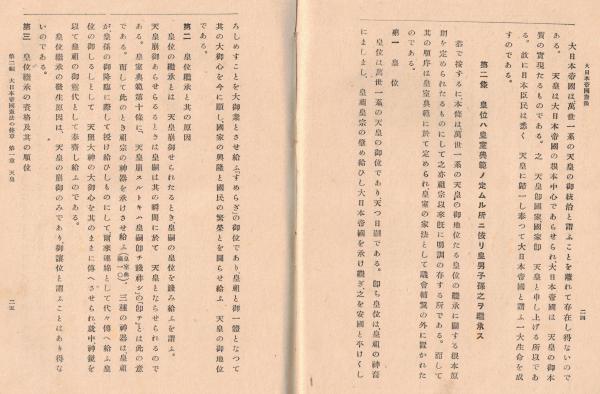 大日本帝國憲法
二四
大日本帝國は萬世一系の天皇の御統治と謂ふことを離れて存在し得ないので
ある。 天皇は大日本帝國の根本中心であらせられ、大日本帝國は 天皇の御本
質の實現たるものである。之 天皇卽國家國家卽 天皇と申し上げる所以であ
る。故に日本臣民は悉く 天皇に歸一し奉つて大日本帝國と謂ふ一大生命を成
すのである。
第二條 皇位ハ皇室典範ノ定ムル所ニ依リ皇男子孫之ヲ繼承ス
恭で按ずるに本條は萬世一系の天皇の御地位たる皇位の繼承に關する根本原
則を定められたるものにして之亦祖宗以來旣に明訓の存する所である。而して
其の順序は皇室典範に於て定められ皇室の家法として議會輔翼の外に置かれた
のである。
第一 皇 位
皇位は萬世一系の天皇の御位であり天つ日嗣である。卽ち皇位は、皇祖の神裔
にましまし、皇祖皇宗の肇め給ひし大日本帝國を承け繼ぎ之を安國と平けくし
ろしめすことを大御業とさせ給ふ「すめらぎ」の御位であり、皇祖と御一體となつて
其の大御心を今に顯し、國家の興隆と國民の繁榮とを圖らせ給ふ 天皇の御地位
である。
第二 皇位繼承と其の原因
皇位の繼承とは 天皇崩御せられたるとき皇嗣の皇位を踐み給ふを謂ふ。
天皇崩御あらせらるるときは皇嗣は其の瞬間に於て 天皇とならせられるので
ある。皇室典範第十條に、天皇崩スルトキハ皇嗣卽チ踐祚シ」の「卽チ」とは此の意
である。而して此のとき祖宗の神器を承けさせ給ふ 三種の神器は皇祖
が皇孫の御降臨に際して授け給ひしものにして爾來連綿として代々傳へ給ふ皇
位の御しるしとして 天照大神の大御心を其のままに傳へさせられ、就中神鏡を
以て皇祖の御靈代として奉齋し給ふのである。
皇位繼承の發生原因は、天皇の崩御のみであり、御讓位と謂ふことはあり得な
いのである。
第三 皇位繼承の資格及其の順位
第二編 大日本帝國憲法の條章 第一章 天皇
二五